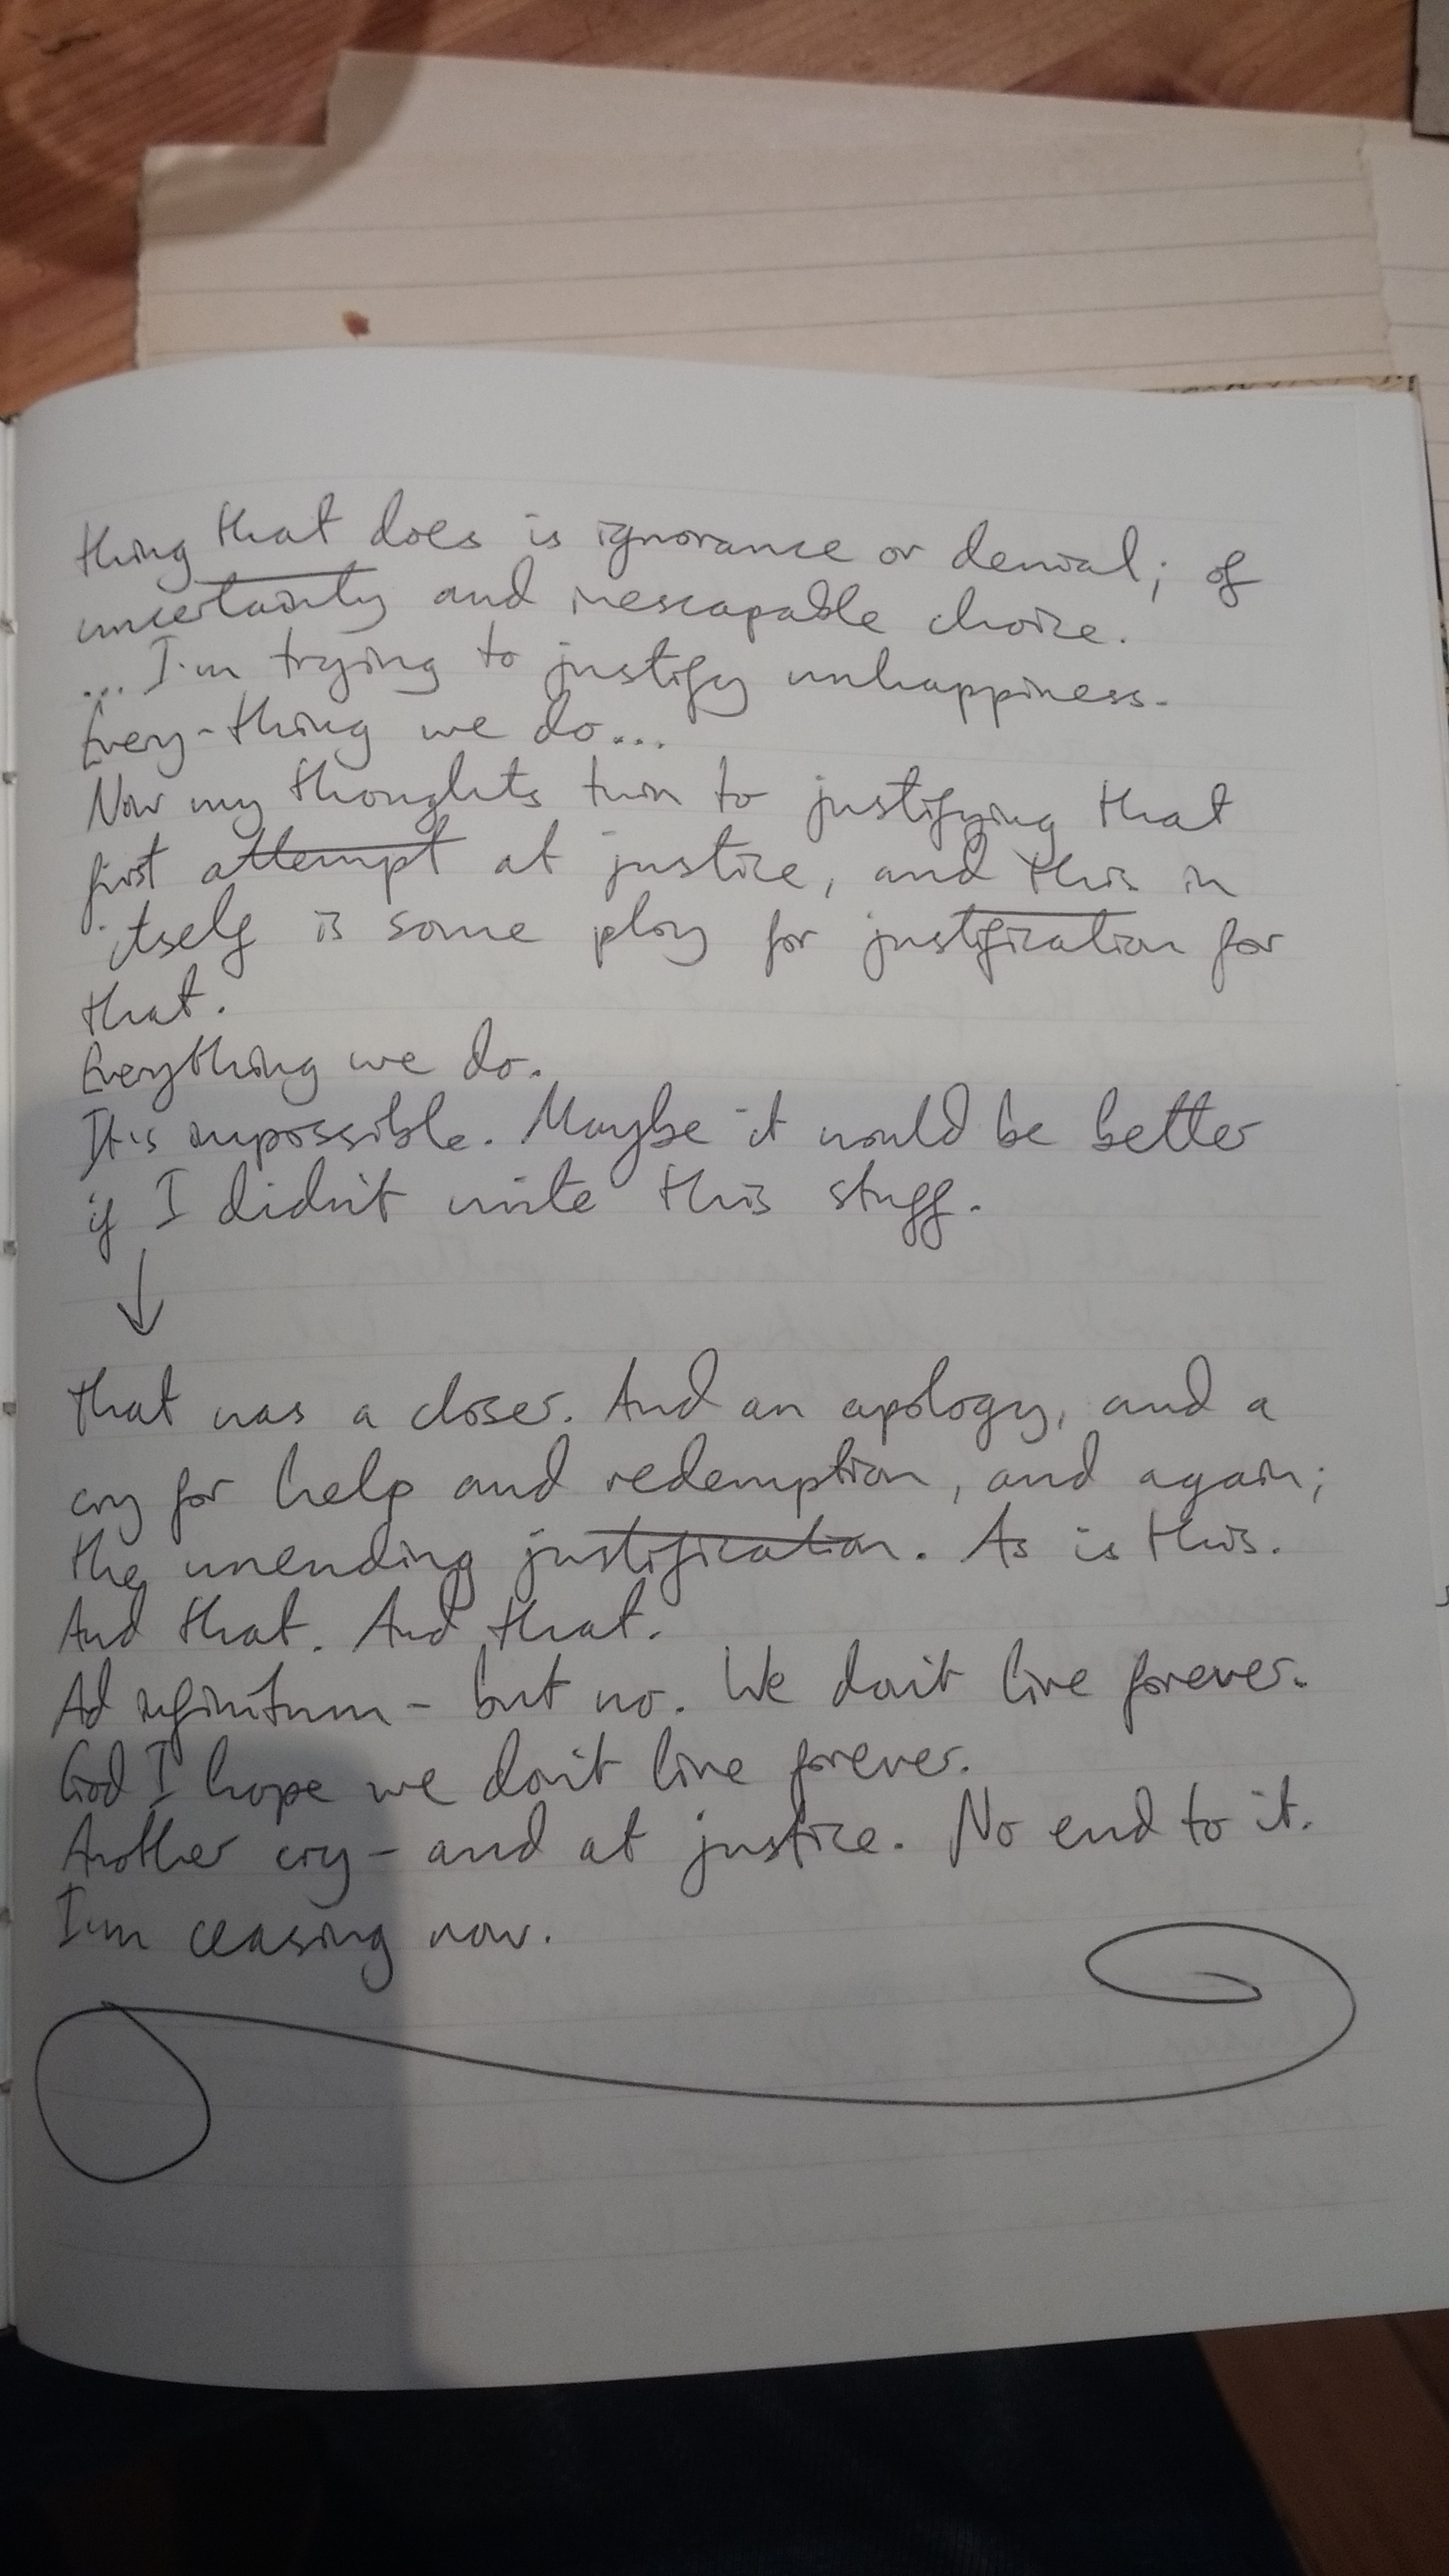 thing that does is ignorance or denial; of
uncertainty and inescapable choice.
... I'm trying to justify unhappiness.
Every-thing we do...
Now my thoughts turn to justifying that
first attempt at justice, and this in
itself is some ploy for justification for
that.
Everything we do.
It's impossible. Maybe it would be better
if I didn't write this stuff.
↓
That was a closer. And an apology, and a
cry for help and redemption, and again;
the unending justification. As is this.
And that. And that.
Ad infinitum - but no. We don't live forever.
God I hope we don't live forever.
Another cry - and at justice. No end to it.
I'm ceasing now.